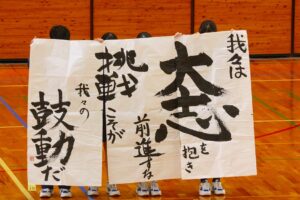 我々は
大志
を抱き
前進する
挑戦こそが
我々の
鼓動だ